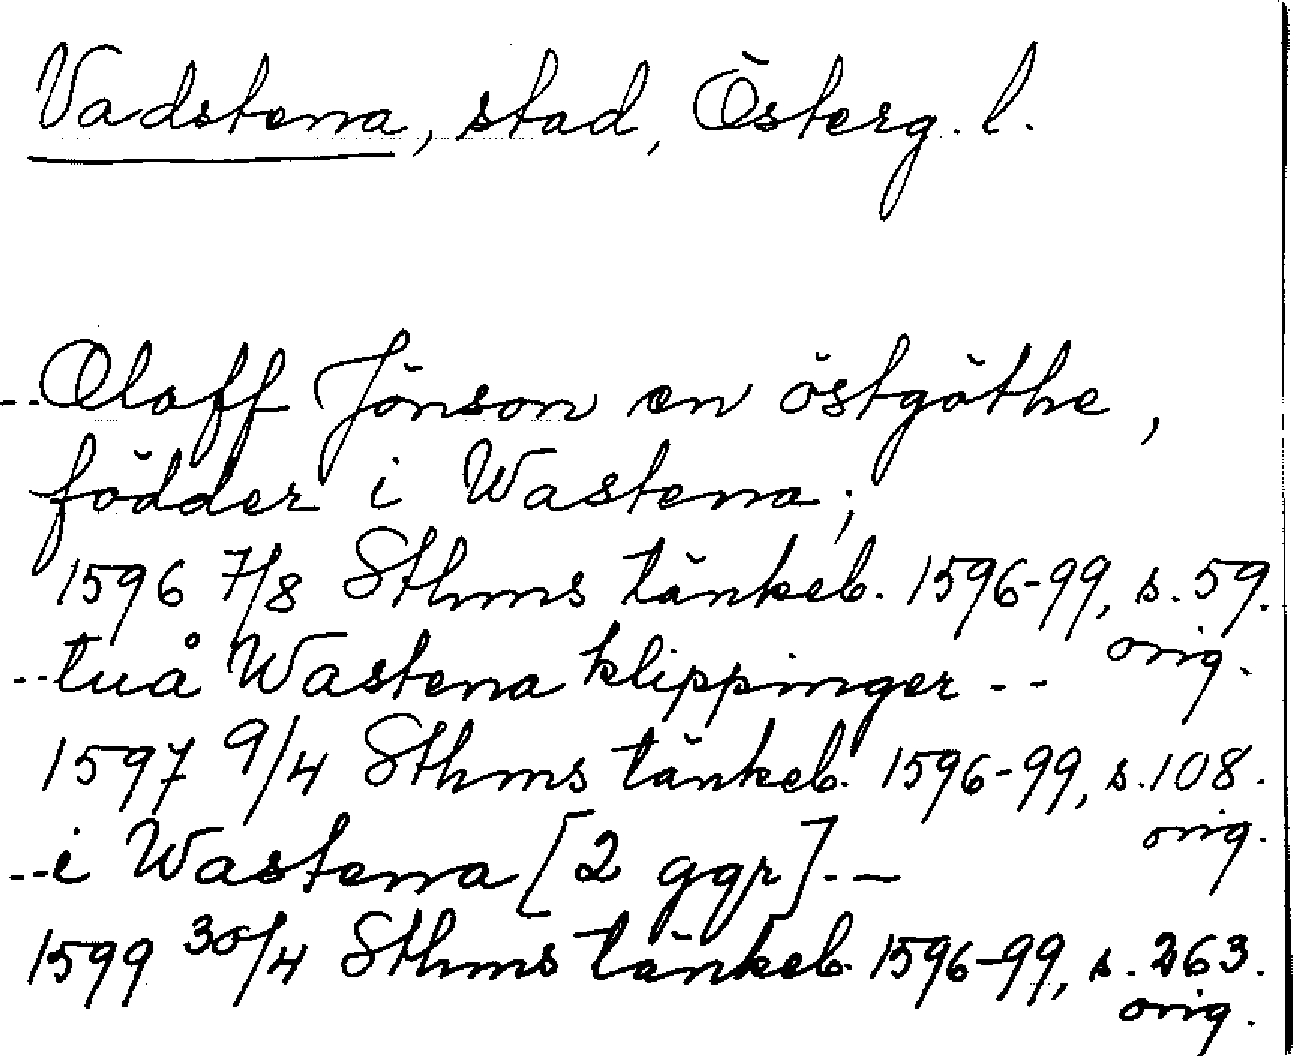 Vadstena, stad, Österg. l.
--Oloff Jönson en östgöthe,
födder i Wastena;
1596 7/8 Sthms tänkeb. 1596-99, s. 59.
orig.
--tuå Wastena klippinger --
1597 9/4 Sthms tänkeb. 1596-99, s. 108.
orig.
--i Wastena [2 ggr]--
1599 30/4 Sthms tänkeb. 1596-99, s. 263.
orig.